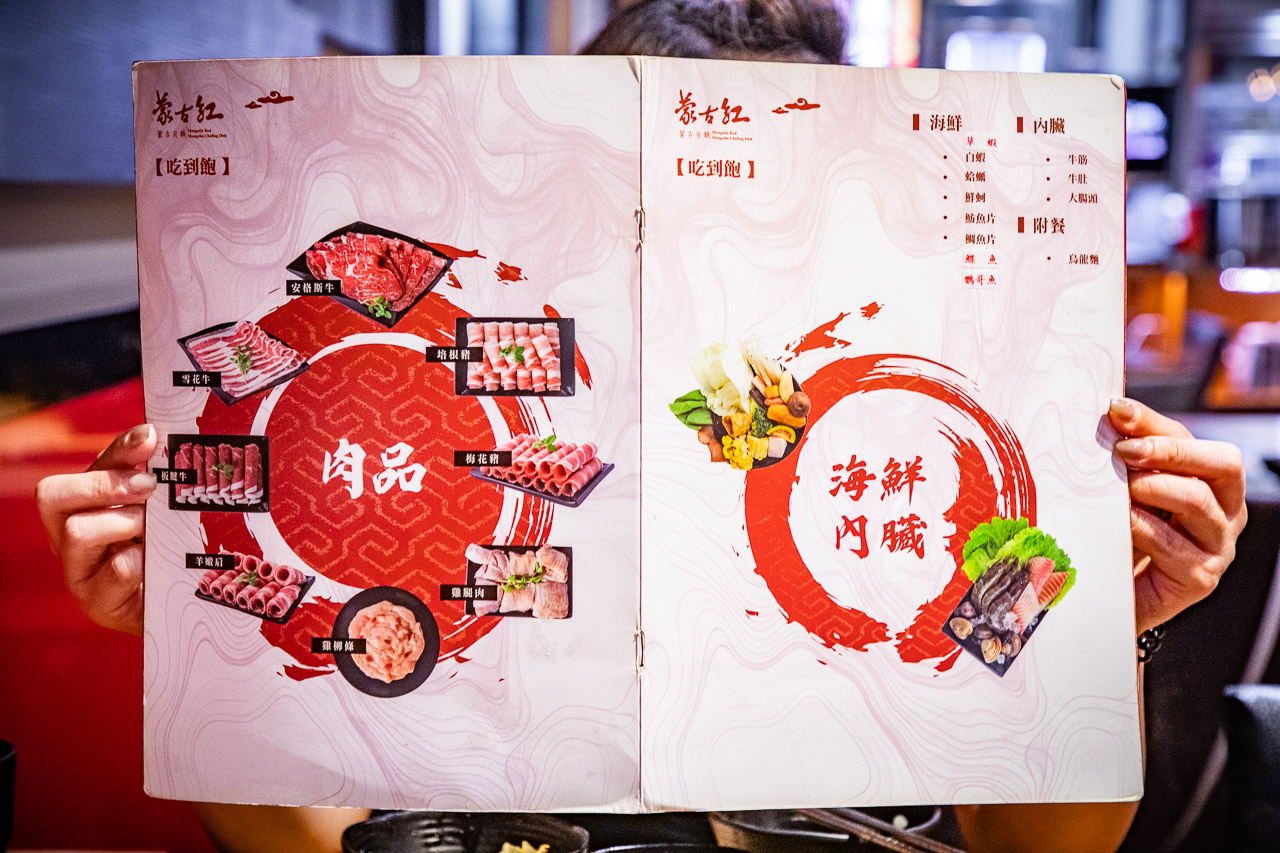 蒙古紅
蒙古火鍋
Mongolia Red
Mongolia Chafing Dish
【吃到飽】
安格斯牛
培根豬
雪花牛
梅花豬
板腱牛
肉品
羊嫩肩
雞腿肉
雞柳條
蒙古紅
蒙古火鍋
Mongolia Red
Mongolia Chafing Dish
【吃到飽】
海鮮
草 蝦
• 白蝦
• 蛤蠣
• 鮮蚵
• 魴魚片
• 鯛魚片
鰈 魚
鸚哥魚
內臟
• 牛筋
• 牛肚
• 大腸頭
附餐
• 烏龍麵
海鮮
內臟